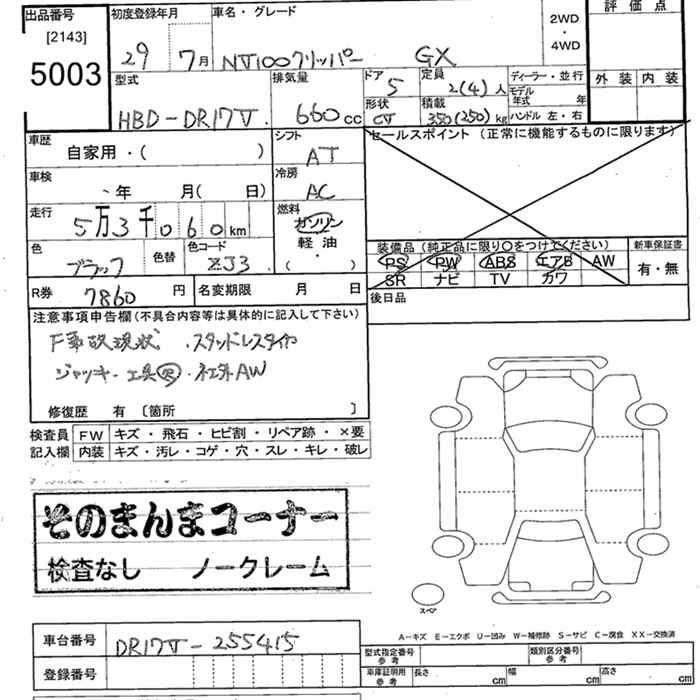 出品番号
[2143]
5003
初度登録年月
29 7月
車名・グレード
NV100クリッパー GX
2WD
・
4WD
評価点
外装 内装
型式
HBD-DR17V
排気量
660cc
ドア
5
定員
2(4)人
形状
CV
積載
350(250)kg
ディーラー・並行
モデル
年式 年
ハンドル 左・右
車歴
自家用・( )
シフト
AT
車検
年 月( 日)
冷房
AC
走行
5万3千060km
燃料
ガソリン
・
軽油
・
( )
色
ブラック
色替
色コード
ZJ3
R券
7860円
名変期限 月 日
セールスポイント(正常に機能するものに限ります)
装備品(純正品に限り○をつけてください)
PS PW ABS エアB AW
SR ナビ TV カワ
新車保証書
有・無
後日品
注意事項申告欄(不具合内容等は具体的に記入して下さい)
F事故現状 .スタッドレスタイヤ
ジャッキー工具欠・社外AW
修復歴 有 〔箇所 〕
検査員
記入欄
FW キズ・飛石・ヒビ割・リペア跡・×要
内装 キズ・汚レ・コゲ・穴・スレ・キレ・破レ
そのまんまコーナー
検査なし ノークレーム
スペア
A-キズ E-エクボ U-凹み W-補修跡 S-サビ C-腐食 XX-交換済
車台番号
DR17V-255415
登録番号
型式指定番号
参考
類別区分番号
参考
車庫証明用
参考
長さ cm 幅 cm 高さ cm